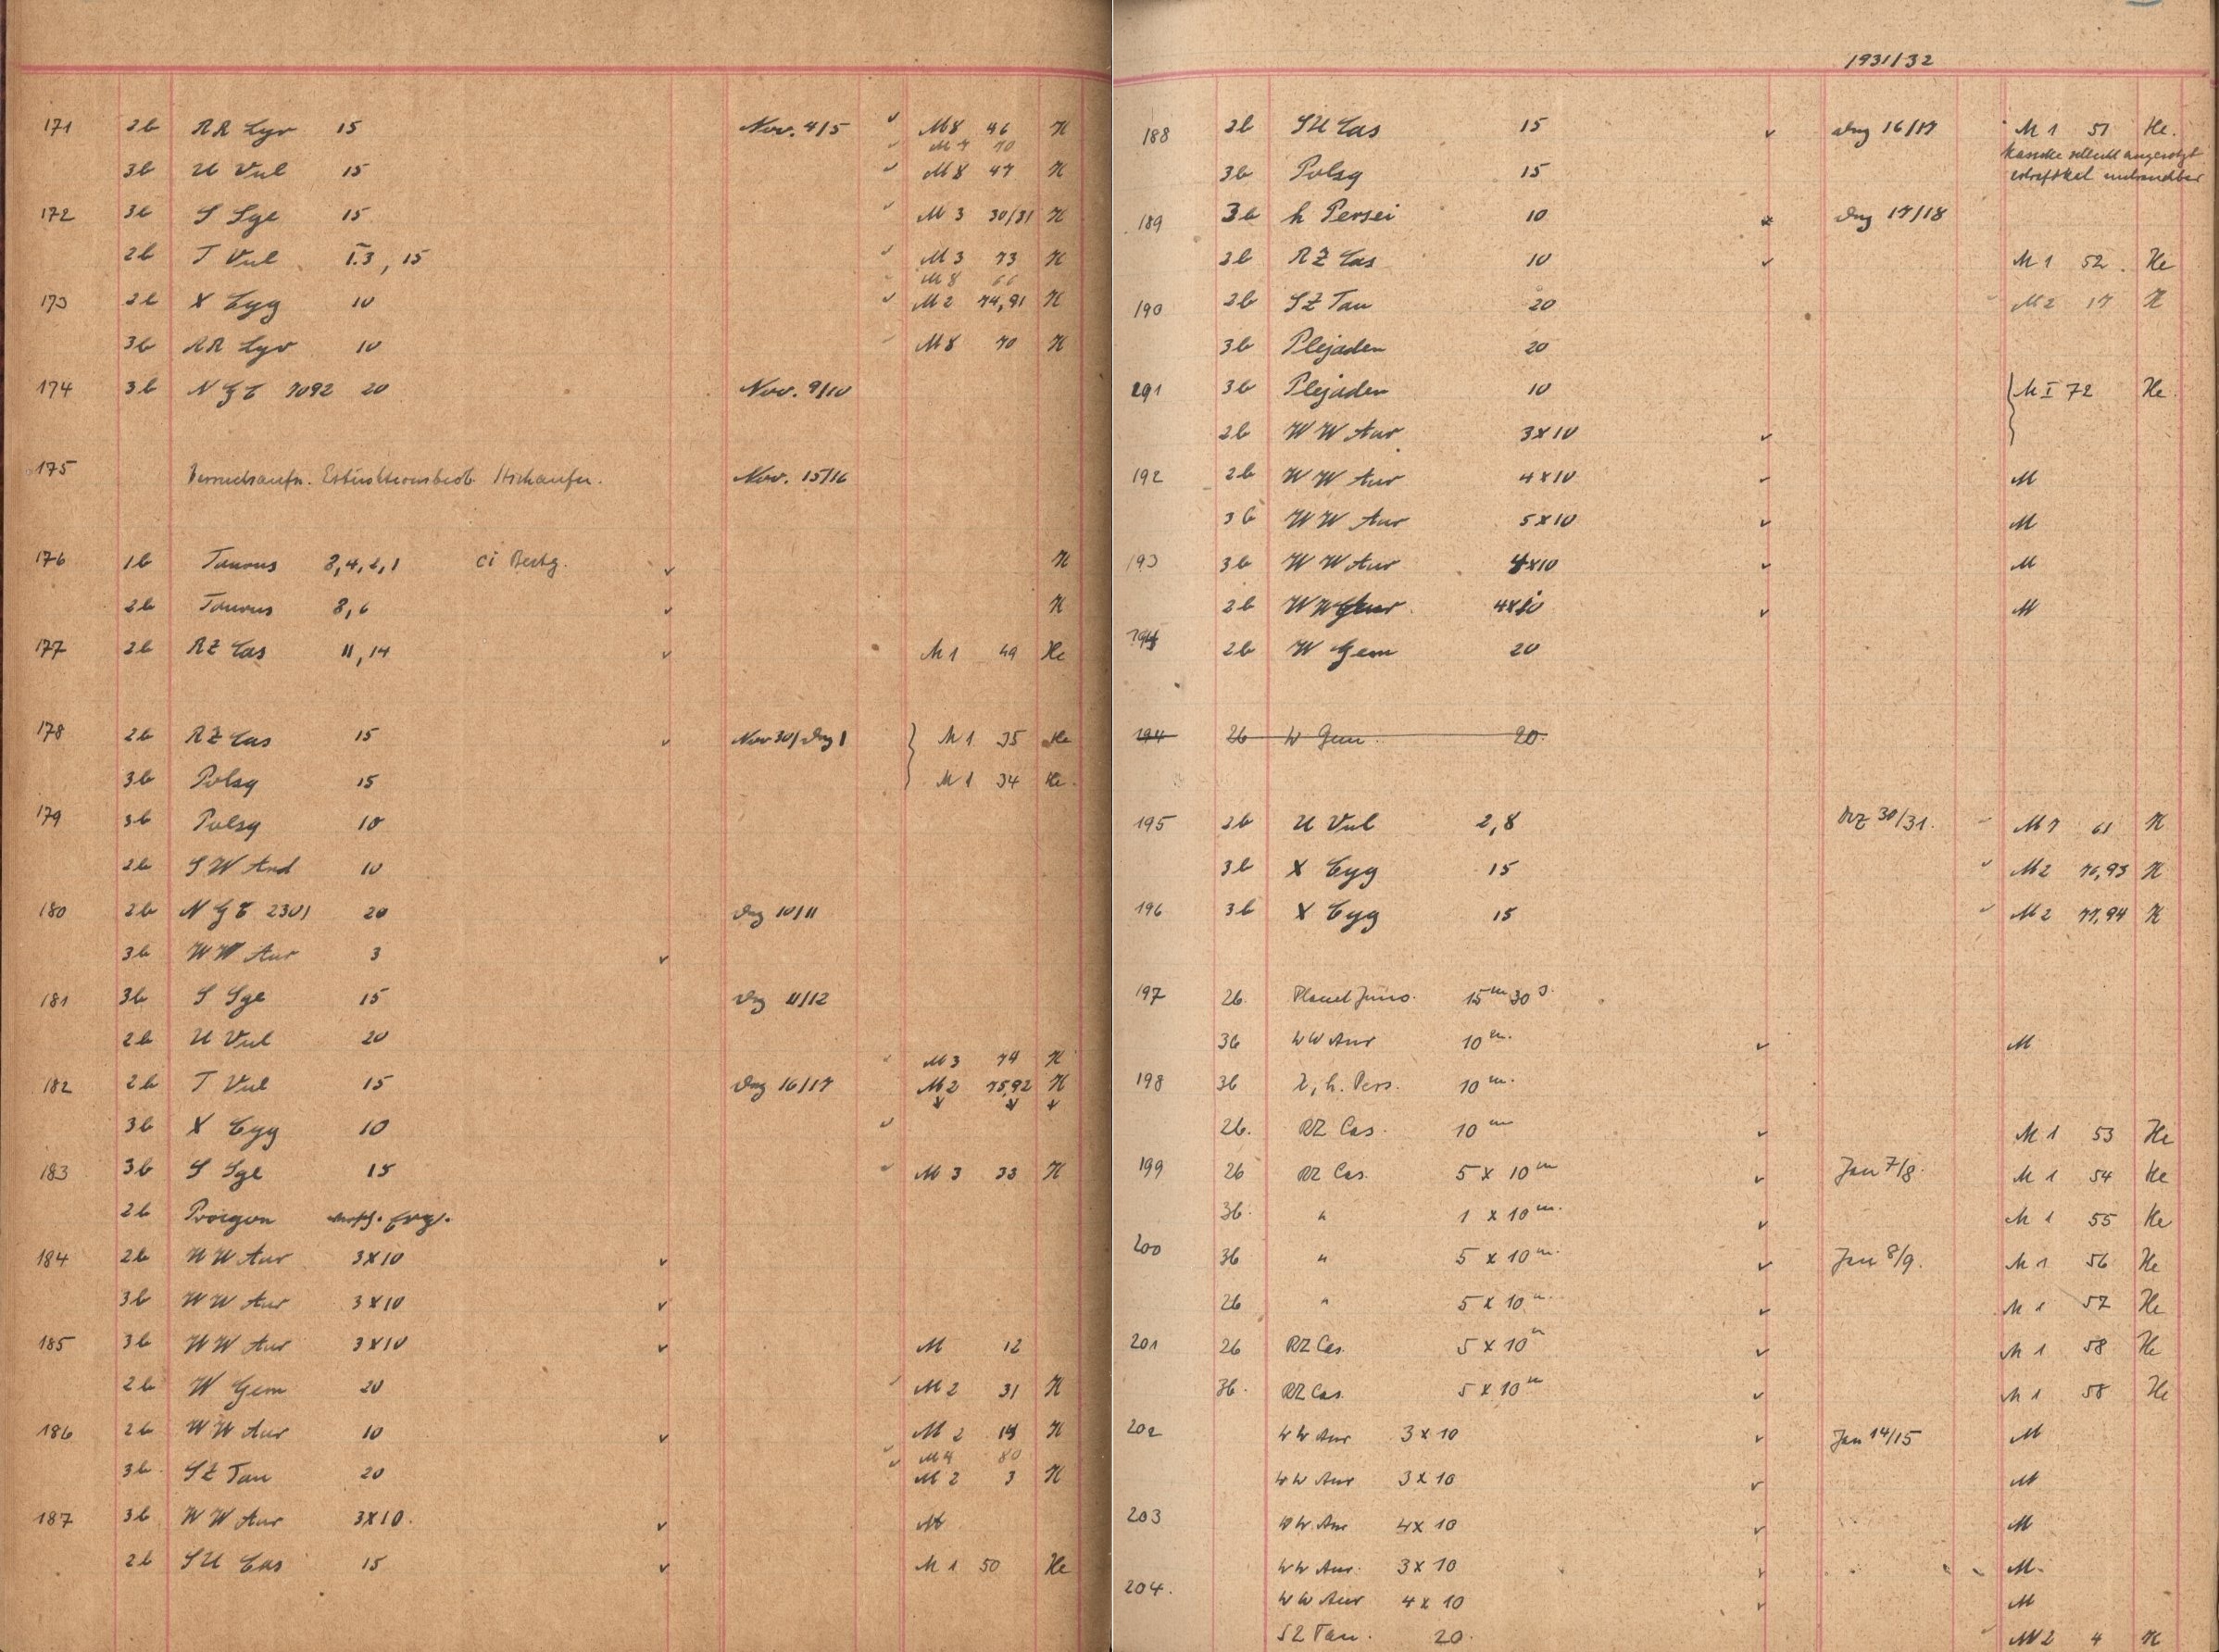 171 2b RR Lyr 15 Nov. 4/5 M8 46 K
M7 70
3b U Vul 15 M8 47 K
172 3b S Sge 15 M3 30/31 K
2b T Vul 15 M3 73 K
M8 66
173 2b X Cyg 10 M2 74,91 K
3b RR Lyr 10 M8 70 K
174 3b N G C 7092 20 Nov. 9/10
175 Nov. 15/16
176 1b Taurus 8,4,2,1 K
2b Taurus 8,6 K
177 2b RZ Cas 11,14 M1 49 He
178 2b RZ Cas 15 Nov 30/Dez 1 M1 35 He
3b Polsq 15 M1 34 He.
179 3b Polsq 10
2b SW And 10
180 2b N G C 2301 20 Dez 10/11
3b WW Aur 3
181 3b S Sge 15 Dez 11/12
2b U Vul 20
M3 74 K
182 2b T Vul 15 Dez 16/17 M2 75,92 K
3b X Cyg 10
183 3b S Sge 15 M3 33 K
2b
184 2b WW Aur 3x10
3b WW Aur 3x10
185 3b WW Aur 3x10 M 12
2b W Gem 20 M2 31 K
186 2b WW Aur 10 M2 K
M4 80
3b SZ Tau 20 M2 3 K
187 3b WW Aur 3x10. M
2b SU Cas 15 M1 50 He
1931/32
188 2b SU Cas 15 Dez 16/17 M1 51 He.
Kassette schlecht angezeigt
3b Polsq 15
189 3b h Persei 10 Dez 17/18
2b RZ Cas 10 M1 52. He
190 2b SZ Tau 20 M2 17 K
3b Plejaden 20
191 3b Plejaden 10 M I 72 He
2b WW Aur 3x10
192 2b WW Aur 4x10 M
3b WW Aur 5x10 M
193 3b WW Aur 4x10 M
2b WW Aur 4x10 M
194 2b W Gem 20
194 2b W Gem. 20.
195 2b U Vul 2,8 DZ 30/31. M7 61 K
3b X Cyg 15 M2 76,93 K
196 3b X Cyg 15 M2 77,94 K
197 2b Planet Juno. 15m 30s.
3b WW Aur 10m. M
198 3b χ, h. Pers. 10m.
2b. RZ Cas. 10m M1 53 He
199 2b RZ Cas. 5 x 10m Jan 7/8. M1 54 He
3b. " 1 x 10m. M1 55 He
200 3b " 5 x 10m. Jan 8/9. M1 56 He
2b " 5 x 10m. M1 57 He
201 2b RZ Cas. 5 x 10m M1 58 He
3b. RZ Cas. 5 x 10m M1 58 He
202 WW Aur 3 x 10 Jan 14/15 M
WW Aur 3 x 10 M
203 WW Aur 4x 10 M
WW Aur. 3x 10 M.
204. WW Aur 4x 10 M
SZ Tau. 20. M2 4 K